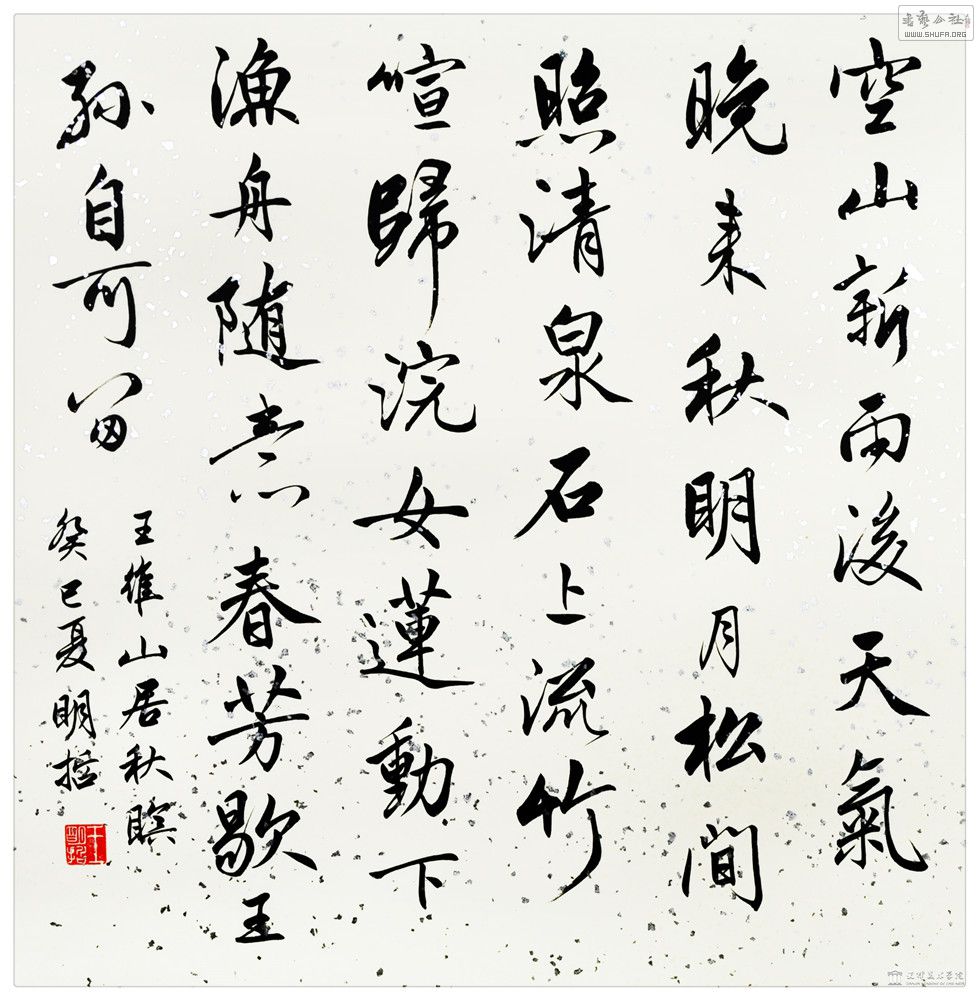 空山新雨後天氣
晚来秋明月松間
照清泉石上流竹
喧歸浣女蓮動下
漁舟随意春芳歇王
孫自可留
王維山居秋暝
癸巳夏明哲
王明哲
書藝公社
WWW.SHUFA.ORG